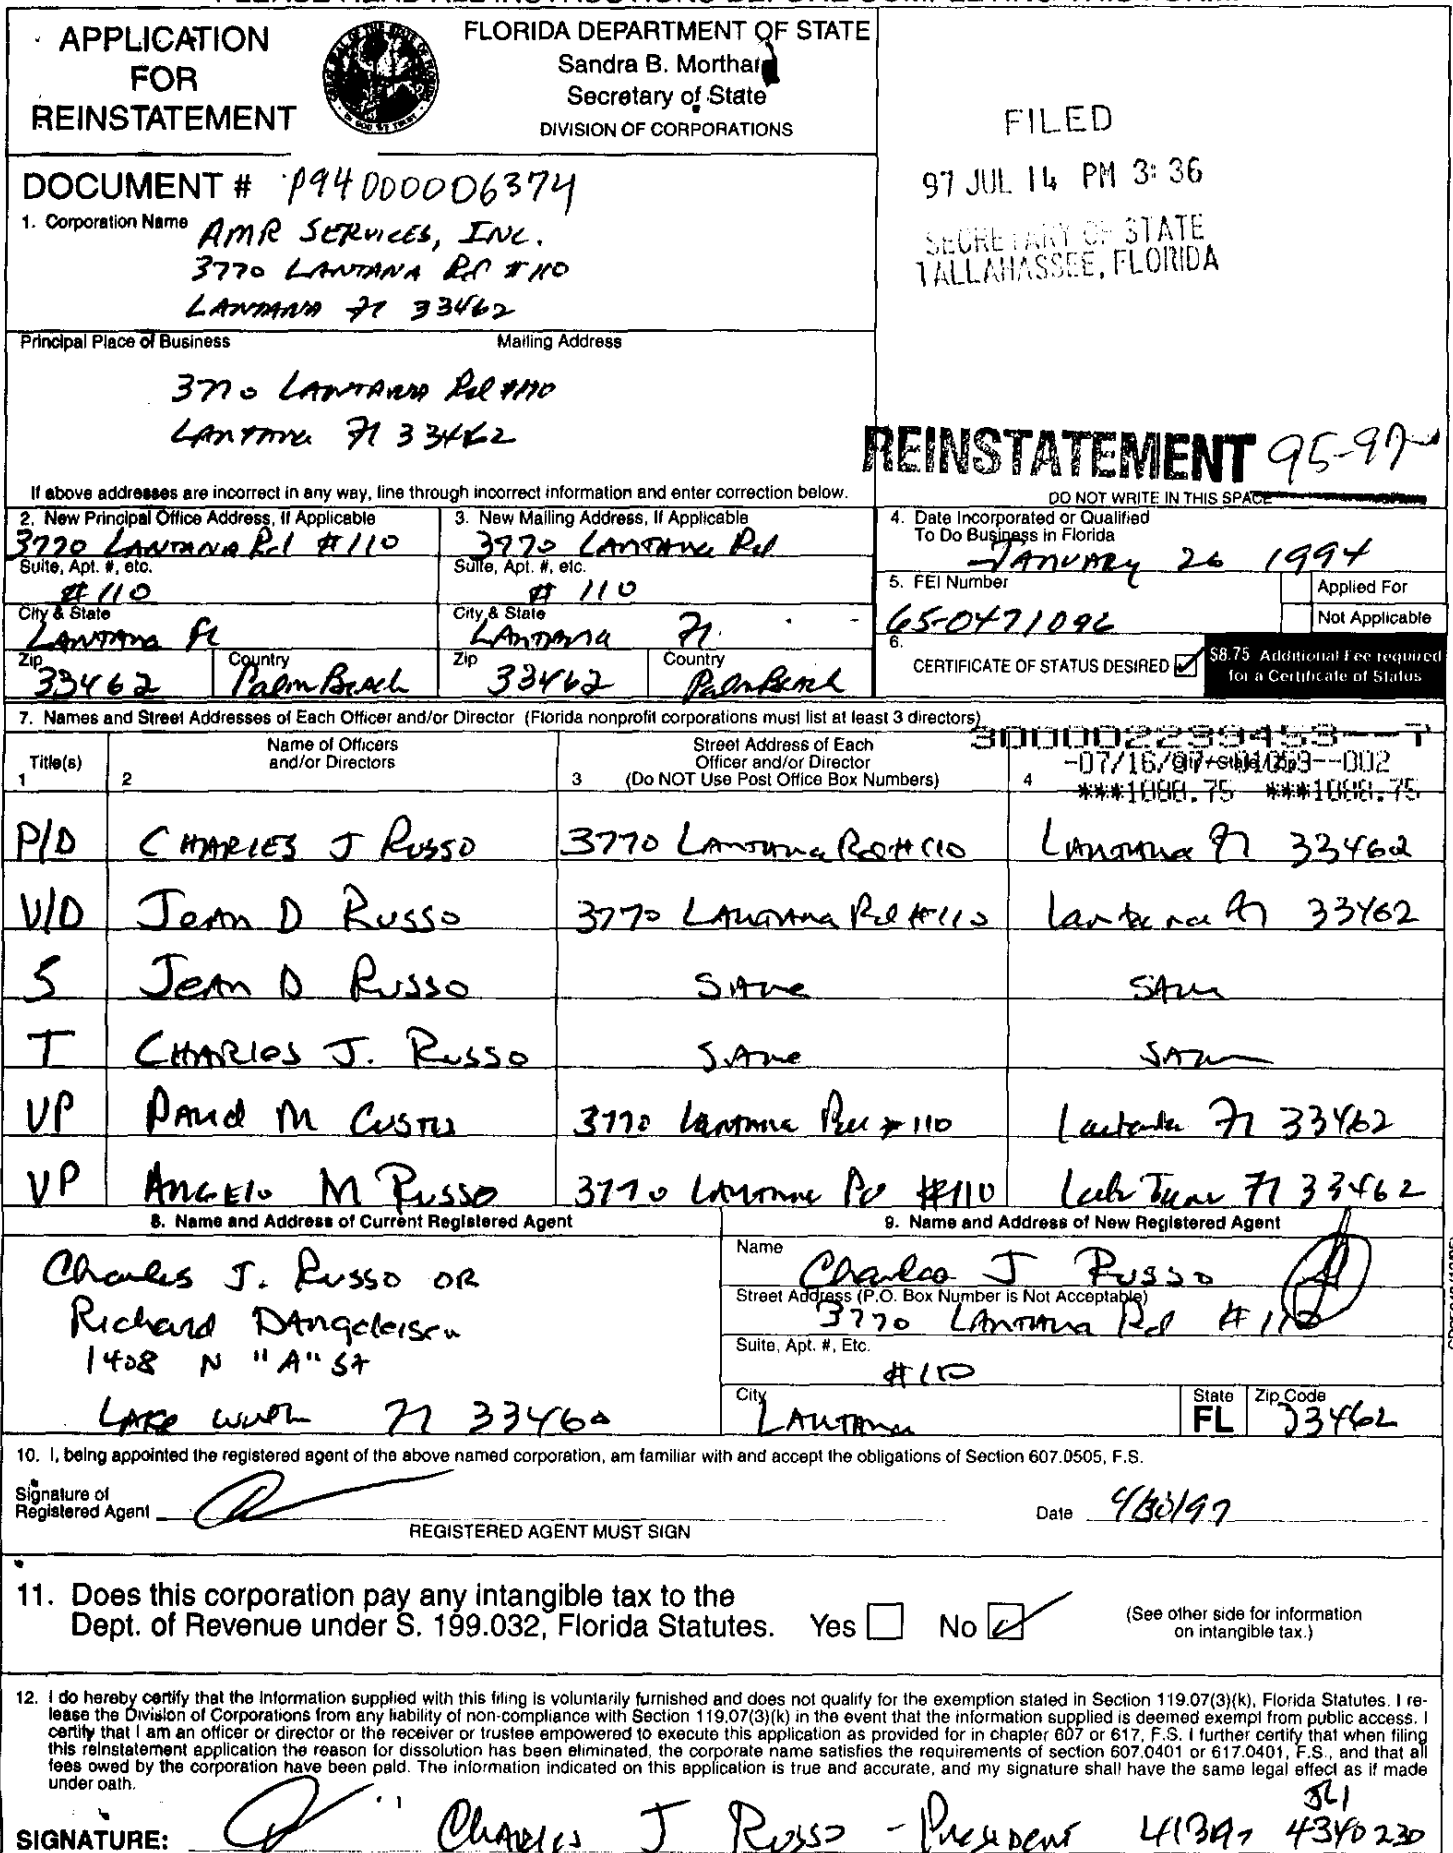 APPLICATION
FOR
REINSTATEMENT
FLORIDA DEPARTMENT OF STATE
Sandra B. Mortham
Secretary of State
DIVISION OF CORPORATIONS
FILED
97 JUL 14 PM 3:36
SECRETARY OF STATE
TALLAHASSEE, FLORIDA
DOCUMENT # P94000006374
1. Corporation Name AMR SERVICES, INC.
3770 LANTANA Rd #110
LANTANA Fl 33462
Principal Place of Business Mailing Address
3770 LANTANA Rd #110
LANTANA Fl 33462
REINSTATEMENT 95-97
If above addresses are incorrect in any way, line through incorrect information and enter correction below.
DO NOT WRITE IN THIS SPACE
2. New Principal Office Address, If Applicable
3770 LANTANA Rd #110
Suite, Apt. #, etc.
#110
City & State
LANTANA FL
Zip Country
33462 Palm Beach
3. New Mailing Address, If Applicable
3770 LANTANA Rd
Suite, Apt. #, etc.
# 110
City & State
LANTANA Fl.
Zip Country
33462 Palm Beach
4. Date Incorporated or Qualified
To Do Business in Florida
JANUARY 26 1994
5. FEI Number
65-0471096
Applied For
Not Applicable
6.
CERTIFICATE OF STATUS DESIRED
$8.75 Additional Fee required
for a Certificate of Status
7. Names and Street Addresses of Each Officer and/or Director (Florida nonprofit corporations must list at least 3 directors)
300002299453--7
-07/16/97--01053--002
***1088.75 ***1088.75
Title(s) Name of Officers and/or Directors Street Address of Each Officer and/or Director (Do NOT Use Post Office Box Numbers) City/State/Zip
1 2 3 4
P/D CHARLES J RUSSO 3770 Lantana Rd #110 Lantana Fl 33462
V/D Jean D Russo 3770 Lantana Rd #110 Lantana Fl 33462
S Jean D Russo Same Same
T CHARles J. Russo Same Same
VP David M 3770 Lantana Rd #110 Lantana Fl 33462
VP ANGElo M Russo 3770 Lantana Rd #110 Lantana Fl 33462
8. Name and Address of Current Registered Agent
Charles J. Russo OR
Richard
1408 N "A" St
LAKE Worth Fl 33460
9. Name and Address of New Registered Agent
Name
Charles J Russo
Street Address (P.O. Box Number is Not Acceptable)
3770 Lantana Rd #110
Suite, Apt. #, Etc.
#110
City State Zip Code
Lantana FL 33462
10. I, being appointed the registered agent of the above named corporation, am familiar with and accept the obligations of Section 607.0505, F.S.
Signature of
Registered Agent
Date 4/30/97
REGISTERED AGENT MUST SIGN
11. Does this corporation pay any intangible tax to the
Dept. of Revenue under S. 199.032, Florida Statutes. Yes No
(See other side for information
on intangible tax.)
12. I do hereby certify that the information supplied with this filing is voluntarily furnished and does not qualify for the exemption stated in Section 119.07(3)(k), Florida Statutes. I re-
lease the Division of Corporations from any liability of non-compliance with Section 119.07(3)(k) in the event that the information supplied is deemed exempt from public access. I
certify that I am an officer or director or the receiver or trustee empowered to execute this application as provided for in chapter 607 or 617, F.S. I further certify that when filing
this reinstatement application the reason for dissolution has been eliminated, the corporate name satisfies the requirements of section 607.0401 or 617.0401, F.S., and that all
fees owed by the corporation have been paid. The information indicated on this application is true and accurate, and my signature shall have the same legal effect as if made
under oath.
561
SIGNATURE: Charles J Russo - President 4340230